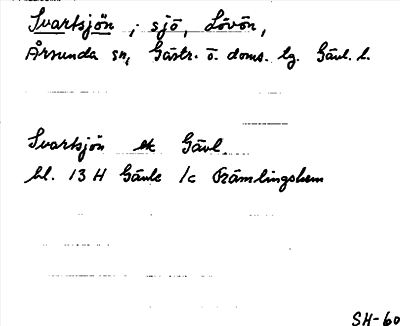 Svartsjön, sjö, Lövön,
Årsunda sn, Gästr. ö. doms. lg. Gävl. l.
Svartsjön ek Gävl.
bl. 13 H Gävle 1c Främlingshem
SH-60